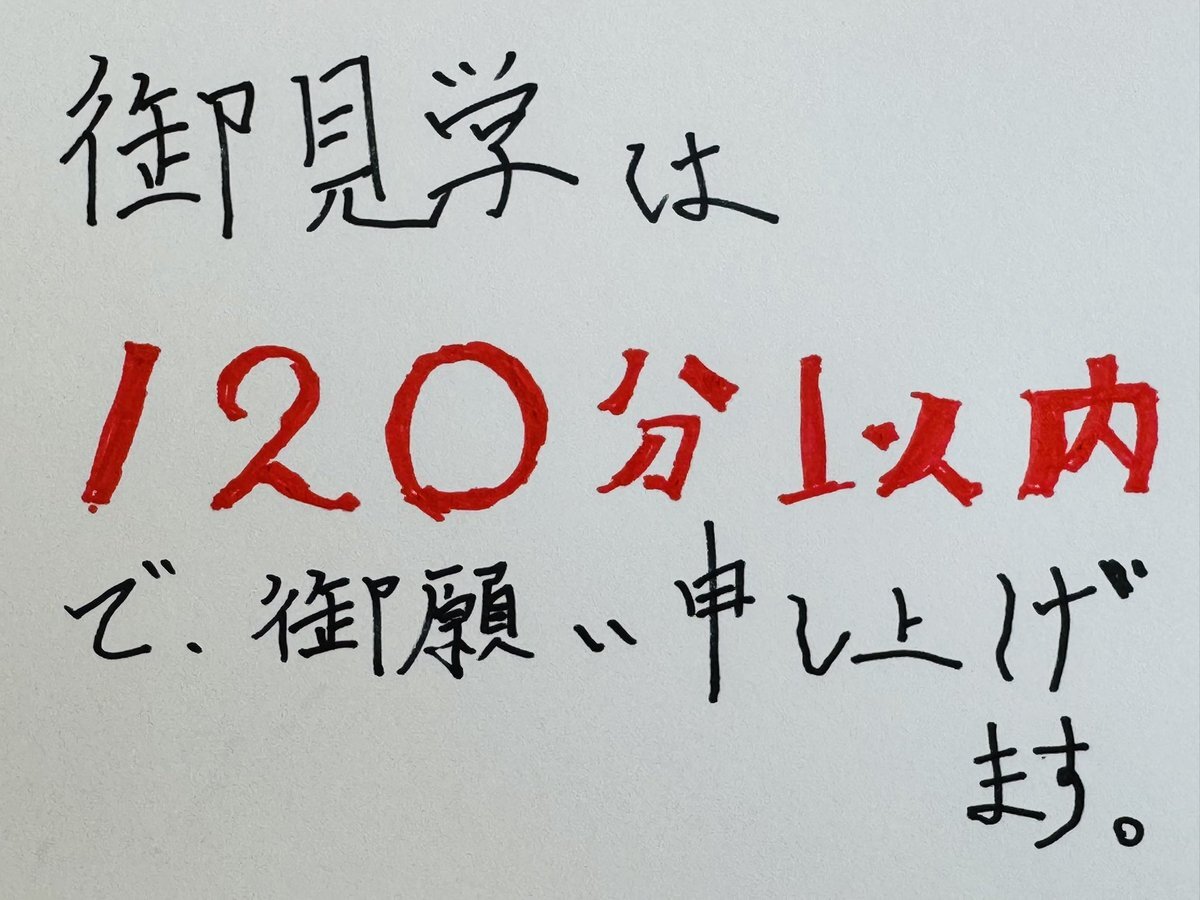 御見学は
120分以内
で、御願い申し上げ
ます。